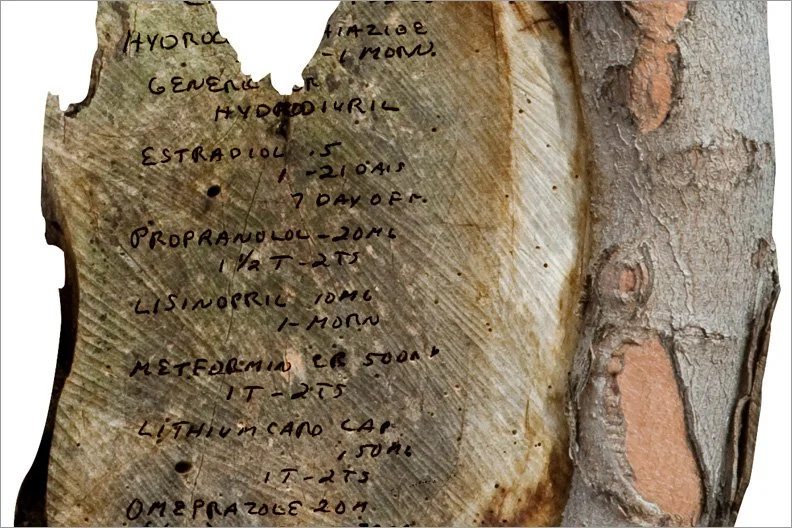 HYDROC IAZIDE
-1 MORN.
GENERIC R
HYDRODIURIL
ESTRADIOL .5
1 -21 DAYS
7 DAY OFF.
PROPRANOLOL -20MG
1 1/2 T -2TS
LISINOPRIL 10MG
1- MORN
METFORMIN ER 500M
1T -2TS
LITHIUM CARD CAP
150MG
1T -2TS
OMEPRAZOLE 20M